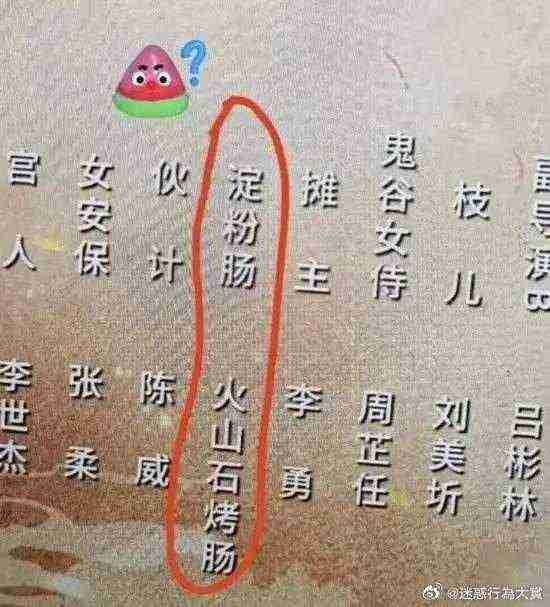 ？
副导演B 吕彬林
枝儿 刘美圻
鬼谷女侍 周芷任
摊主 李勇
淀粉肠 火山石烤肠
伙计 陈威
女安保 张柔
官人 李世杰
@迷惑行為大賞